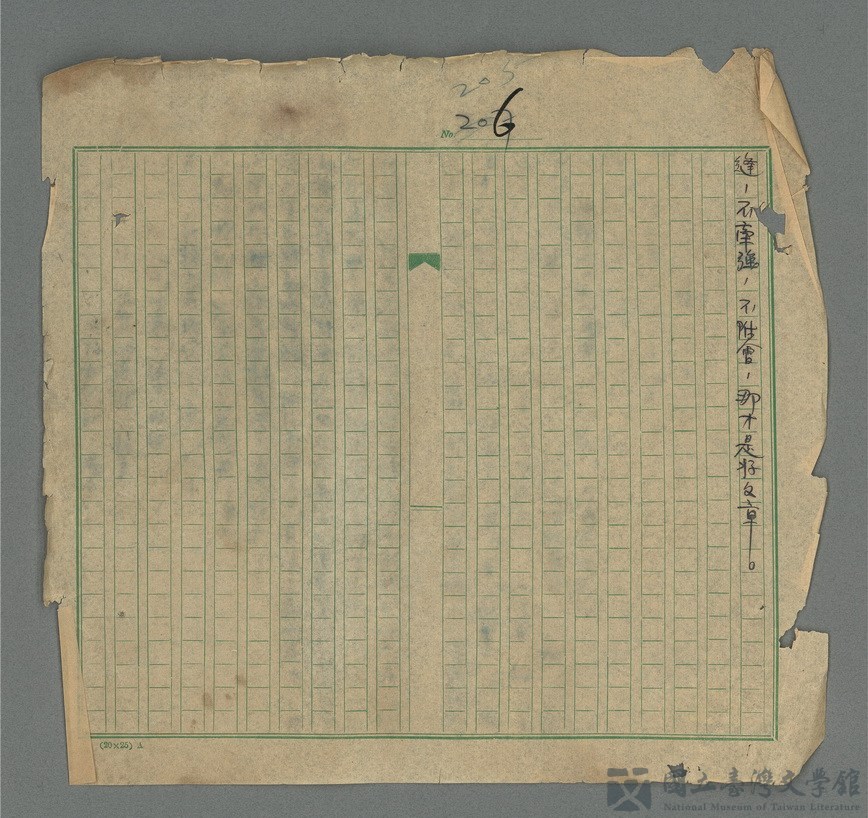 205
No. 206
縫，不牽強，不附會，那才是好文章。
(20×25) A
國立臺灣文學館
National Museum of Taiwan Literature